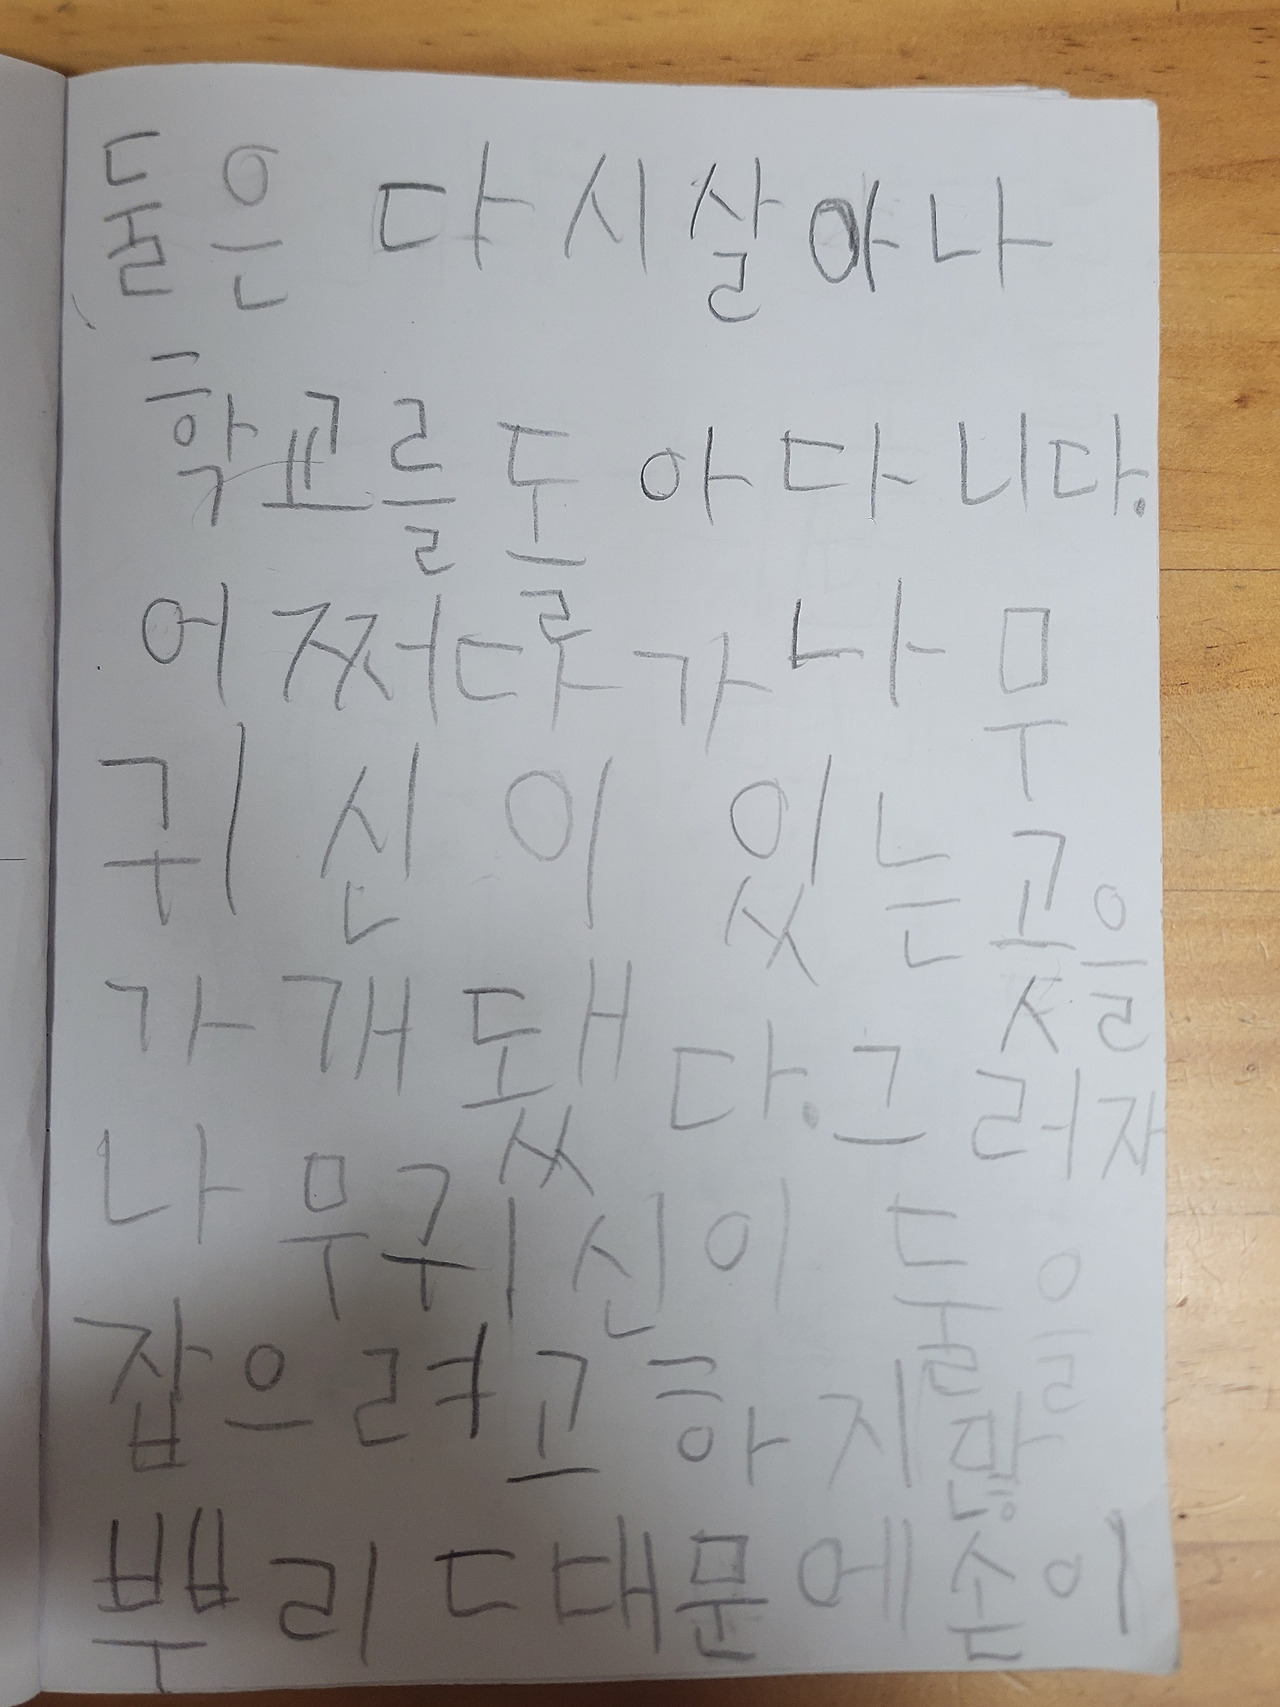 둘은 다시살아나
학교를 돌아다니다.
어쩌다가나무
귀신이 있는곳을
가개됐다.그러자
나무귀신이 둘을
잡으려고하지많
뿌리때문에손이